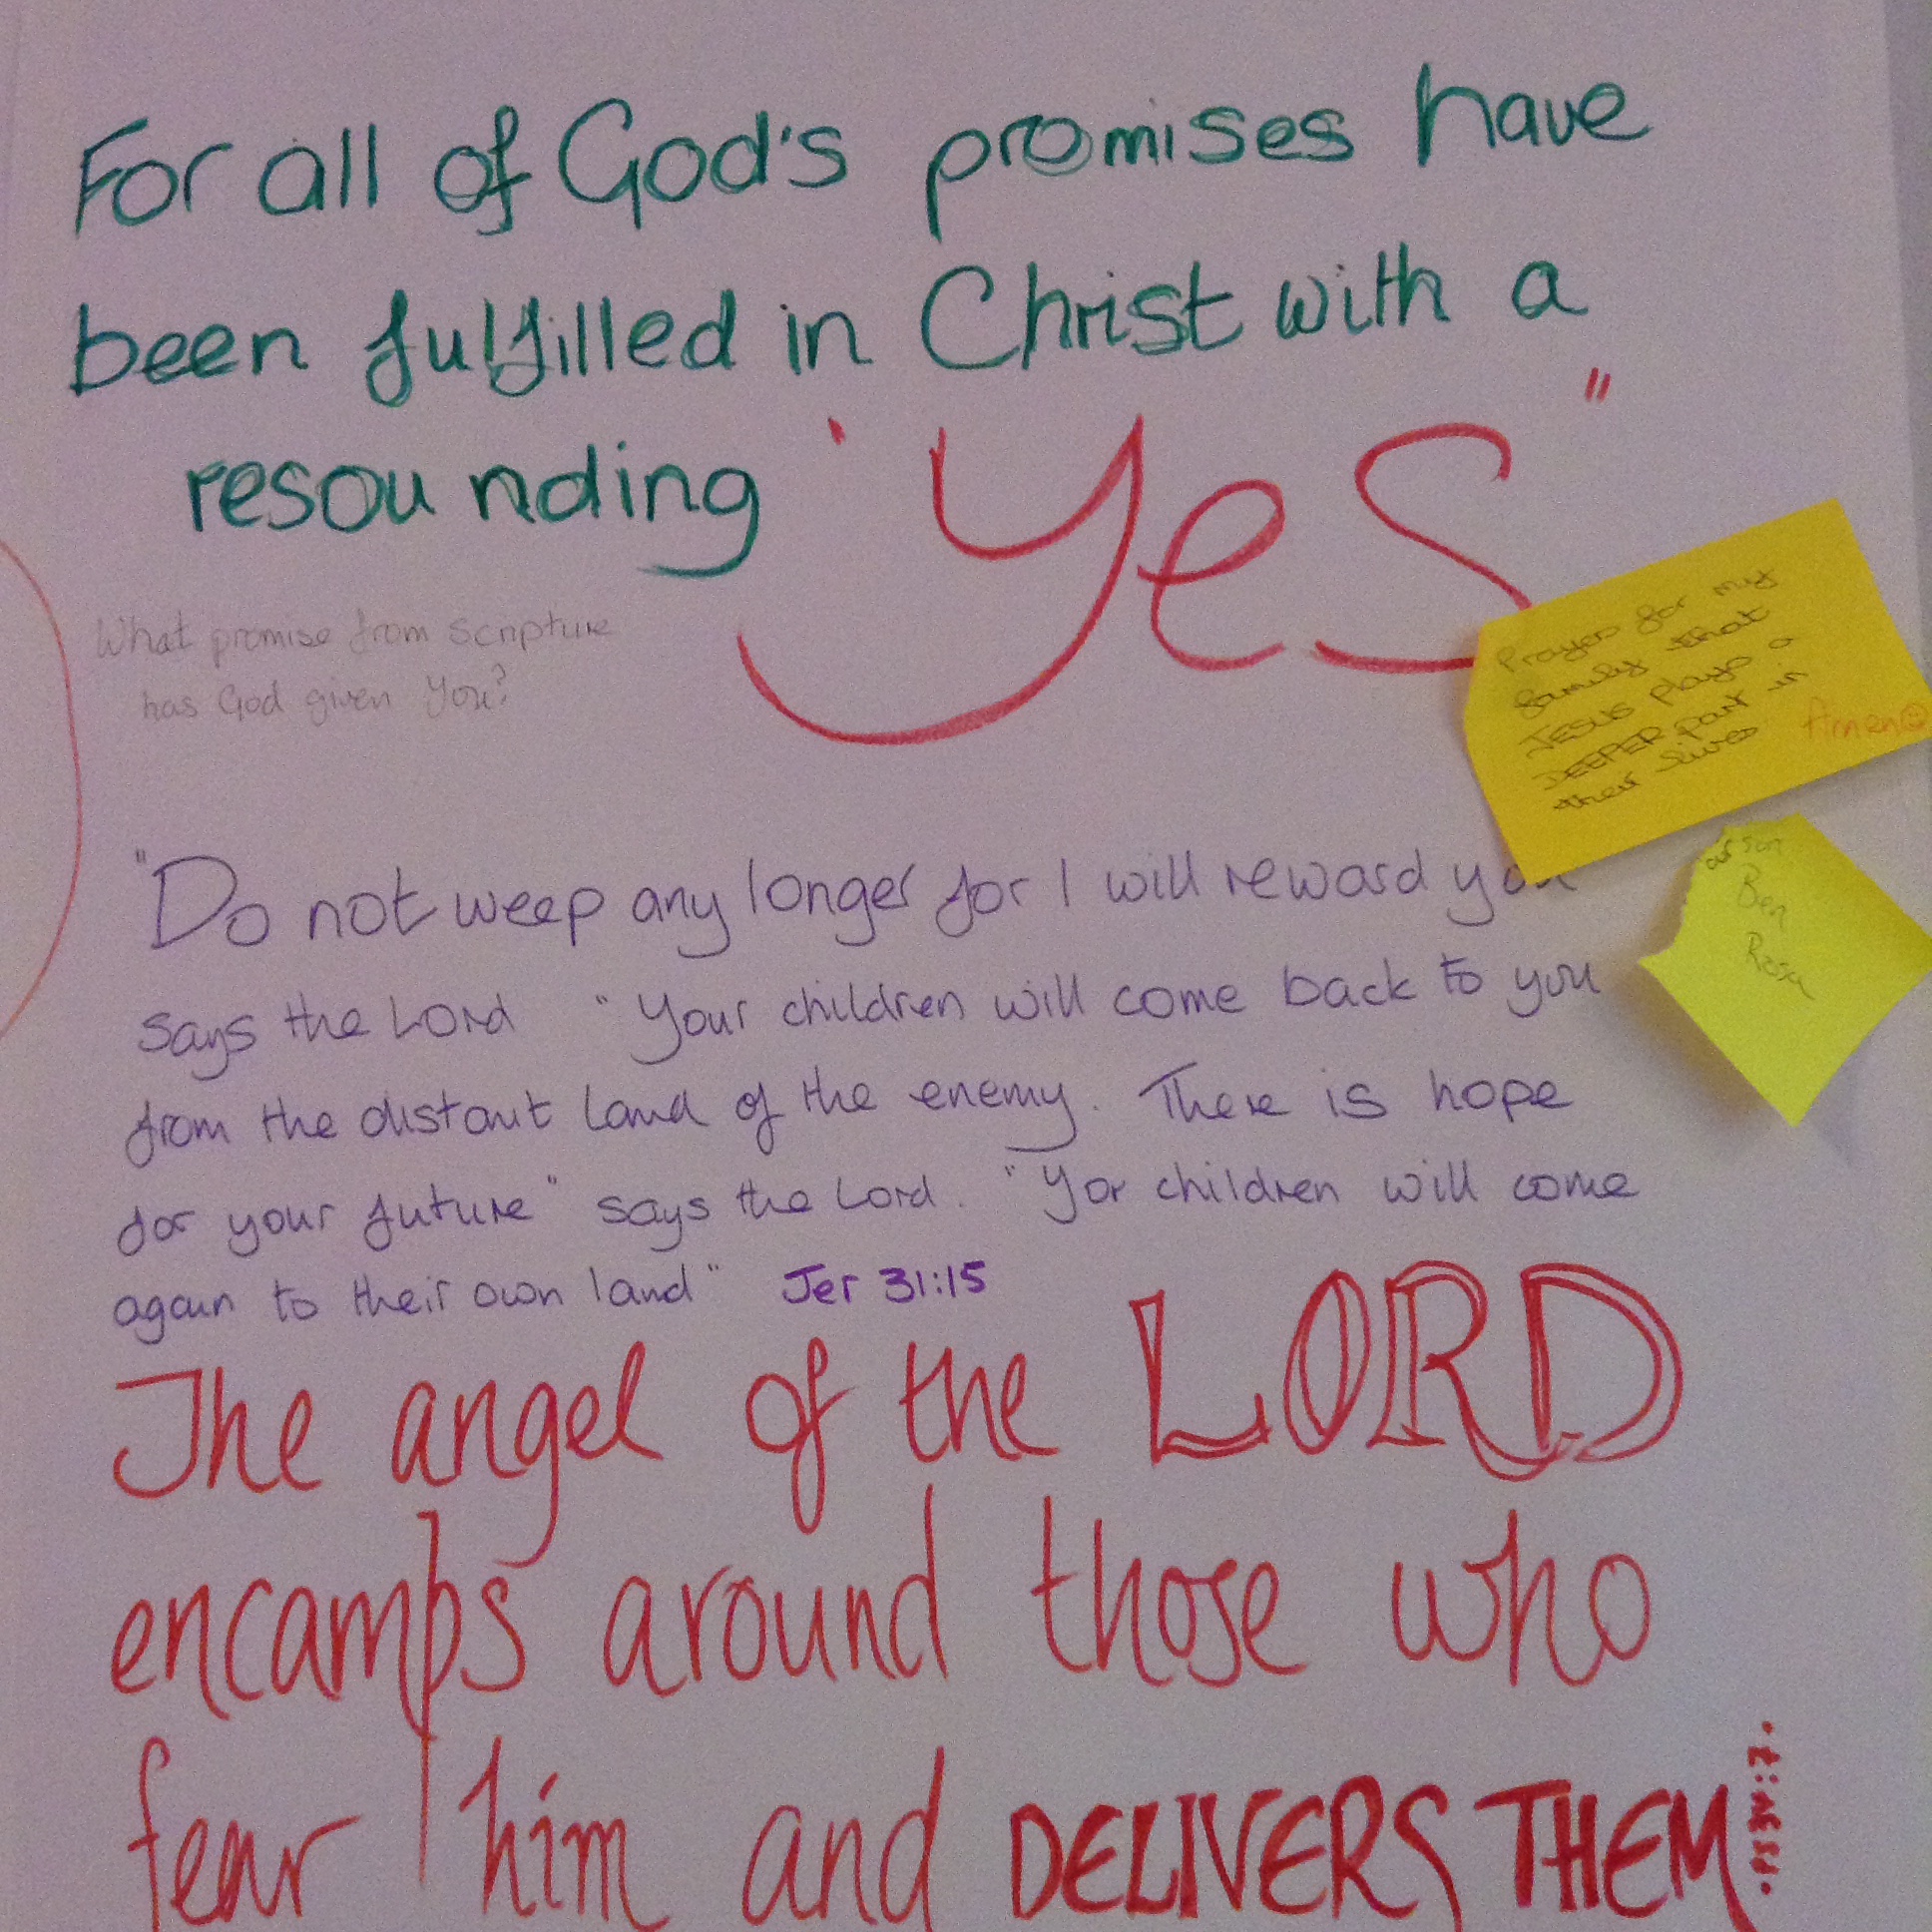 For all of God's promises have
been fulfilled in Christ with a
resounding "Yes"
What promise from scripture
has God given you?
Prayer for my
family that
JESUS plays a
DEEPER part in
their lives
Amen☺
our son
Ben
"Do not weep any longer for I will reward you
says the Lord "Your children will come back to you
from the distant land of the enemy. There is hope
for your future" says the Lord. "Yor children will come
again to their own land" Jer 31:15
The angel of the LORD
encamps around those who
fear him and DELIVERS THEM
.PS34:7.